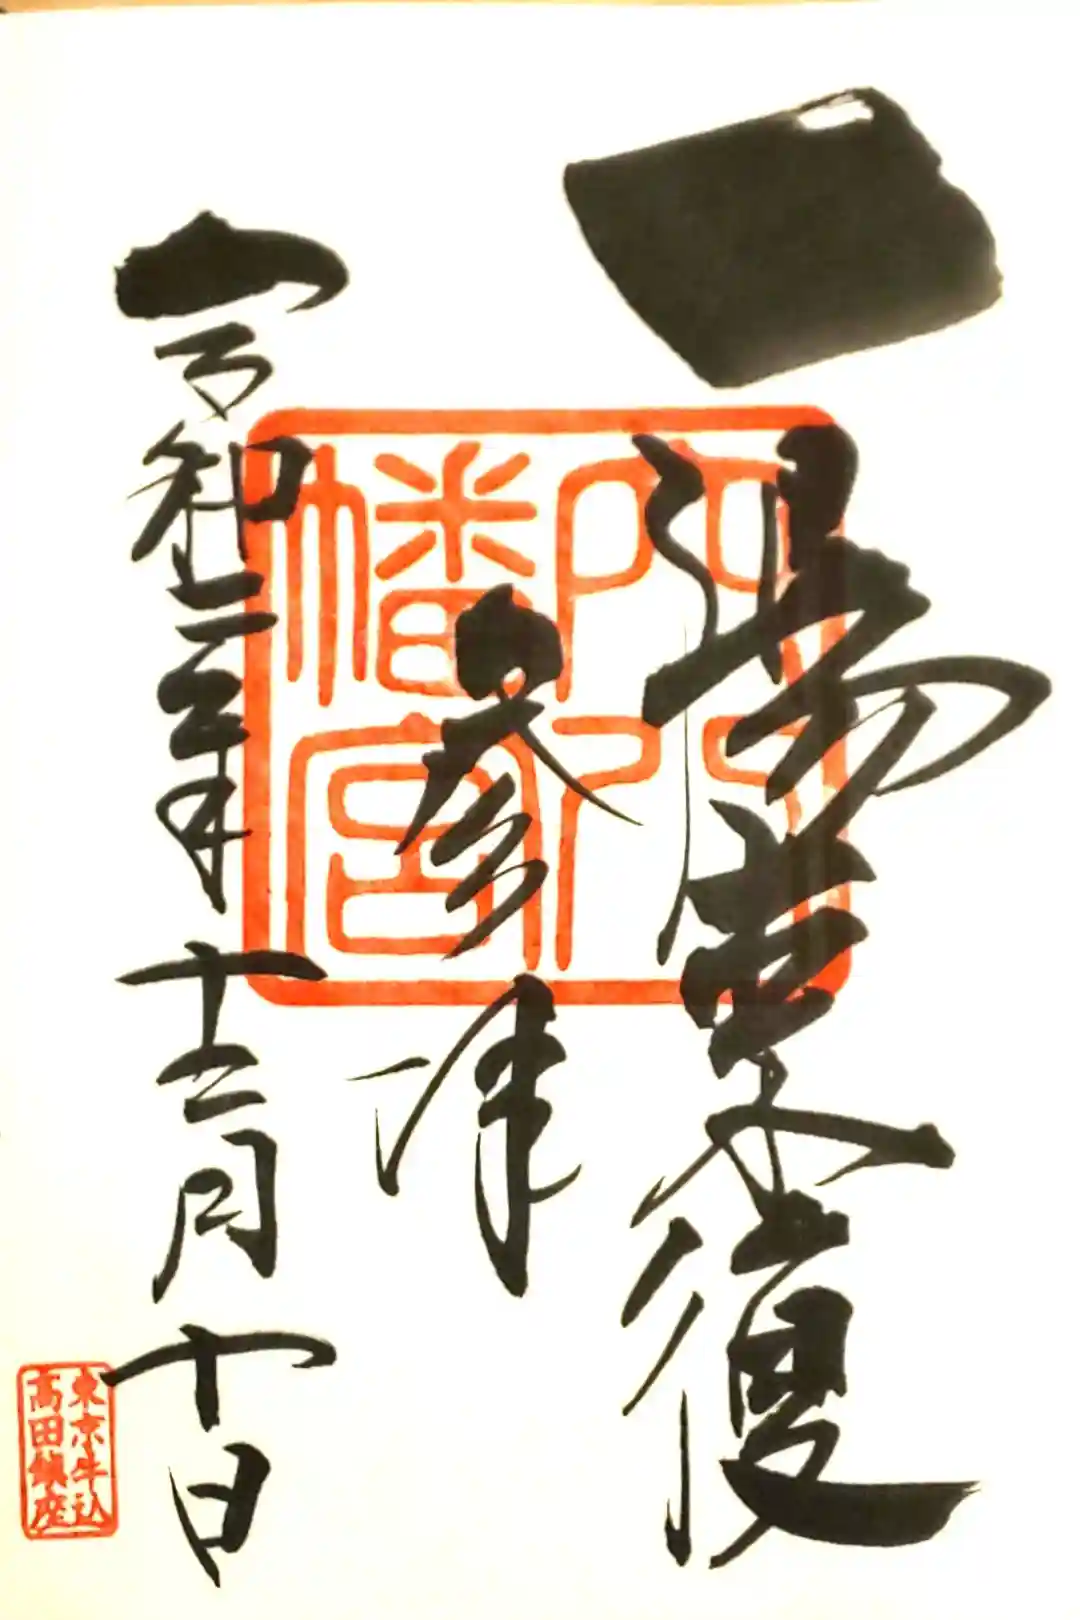 一陽來復
參拝
令和三年十二月十日
穴八幡宮
東京牛込
高田鎮座